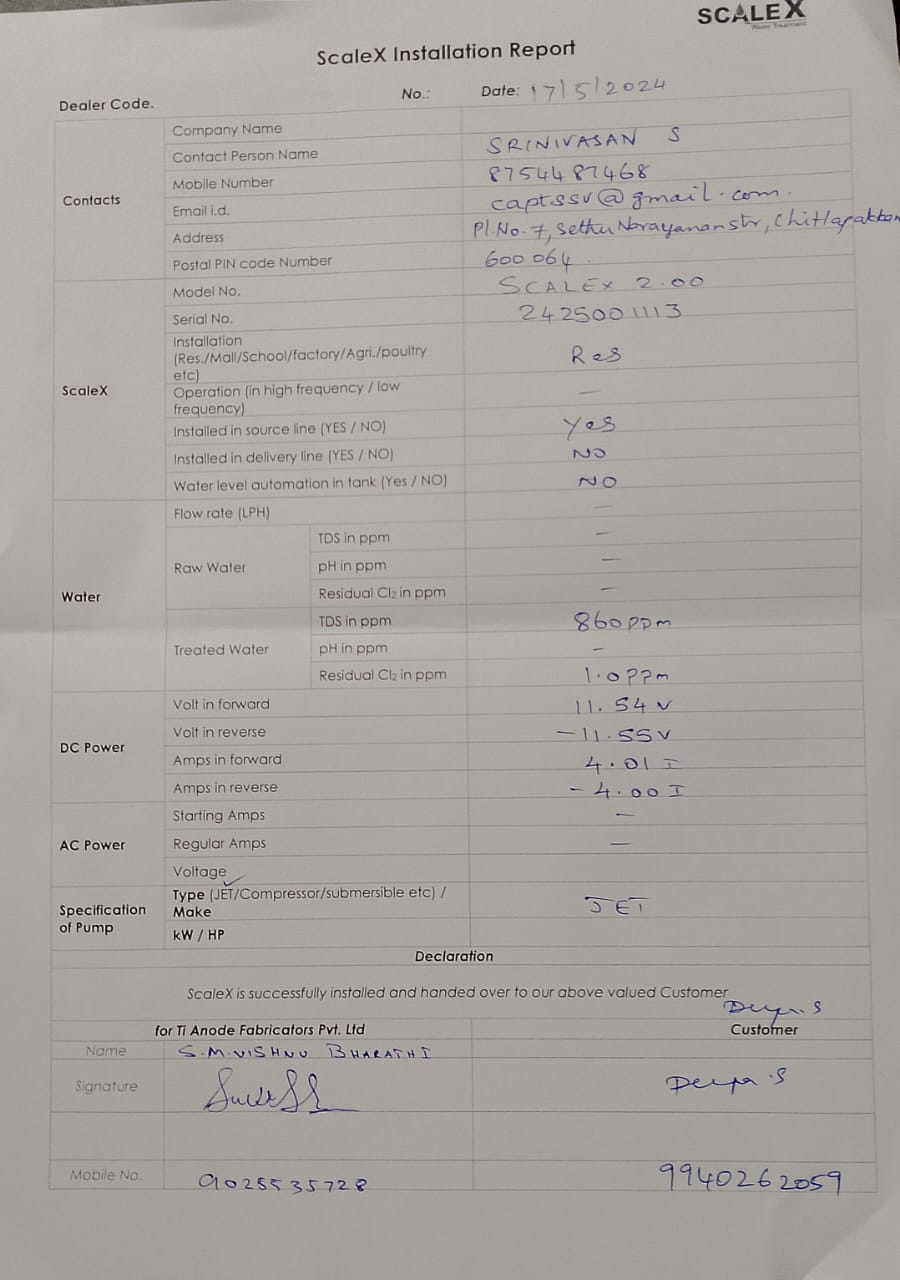 SCALEX
Water Treatment
ScaleX Installation Report
Dealer Code. No.: Date: 17/5/2024
Contacts
Company Name
Contact Person Name SRINIVASAN S
Mobile Number 8754487468
Email i.d. captssv@gmail.com.
Address Pl.No.7, Sethu Narayanan str, Chitlapakkam
Postal PIN code Number 600064.
ScaleX
Model No. SCALEX 2.00
Serial No. 2425001113
Installation
(Res./Mall/School/factory/Agri./poultry
etc) Res
Operation (in high frequency / low
frequency) —
Installed in source line (YES / NO) Yes
Installed in delivery line (YES / NO) NO
Water level automation in tank (Yes / NO) NO
Water
Flow rate (LPH) —
Raw Water
TDS in ppm —
pH in ppm —
Residual Cl₂ in ppm —
Treated Water
TDS in ppm 860ppm
pH in ppm —
Residual Cl₂ in ppm 1.0ppm
DC Power
Volt in forward 11.54 v
Volt in reverse -11.55v
Amps in forward 4.01 I
Amps in reverse -4.00 I
AC Power
Starting Amps —
Regular Amps —
Voltage
Specification
of Pump
Type (JET/Compressor/submersible etc) /
Make JET
kW / HP
Declaration
ScaleX is successfully installed and handed over to our above valued Customer
Deepa.S
for Ti Anode Fabricators Pvt. Ltd Customer
Name S.M.VISHNU BHARATHI
Signature Deepa.S
Mobile No. 9025535728 9940262059